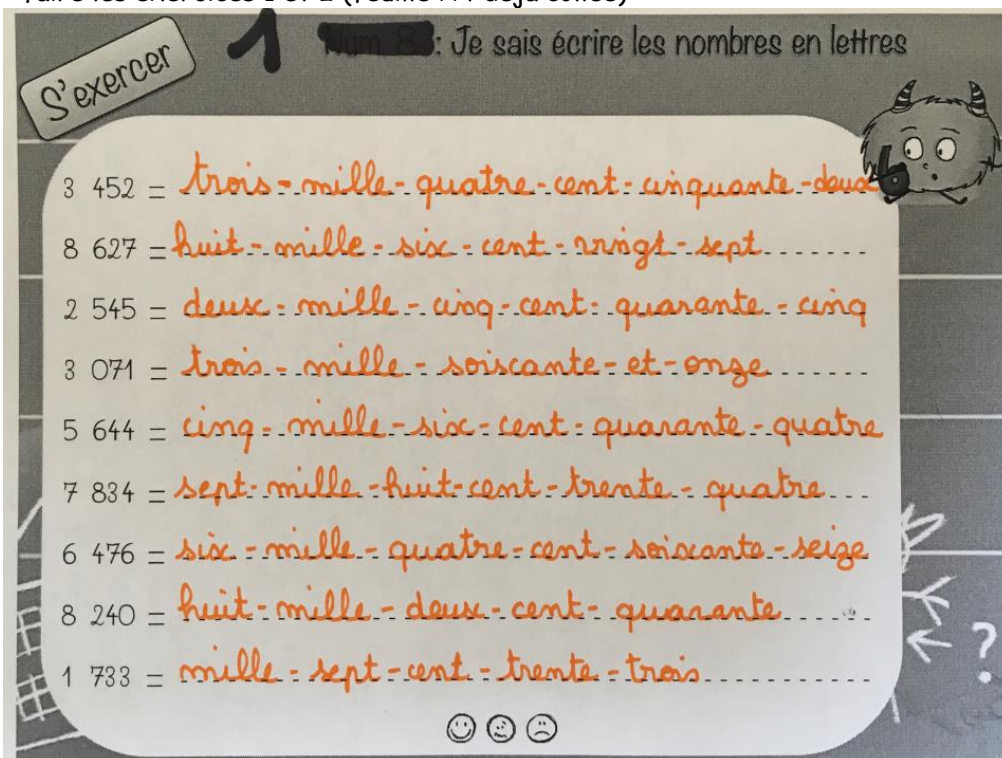 faire les exercices 1 et 2 (feuille A4 déjà collée)
S'exercer
1 Num 8 : Je sais écrire les nombres en lettres
3 452 = trois-mille-quatre-cent-cinquante-deux
8 627 = huit-mille-six-cent-vingt-sept
2 545 = deux-mille-cinq-cent-quarante-cinq
3 071 = trois-mille-soixante-et-onze
5 644 = cinq-mille-six-cent-quarante-quatre
7 834 = sept-mille-huit-cent-trente-quatre
6 476 = six-mille-quatre-cent-soixante-seize
8 240 = huit-mille-deux-cent-quarante
?
1 733 = mille-sept-cent-trente-trois